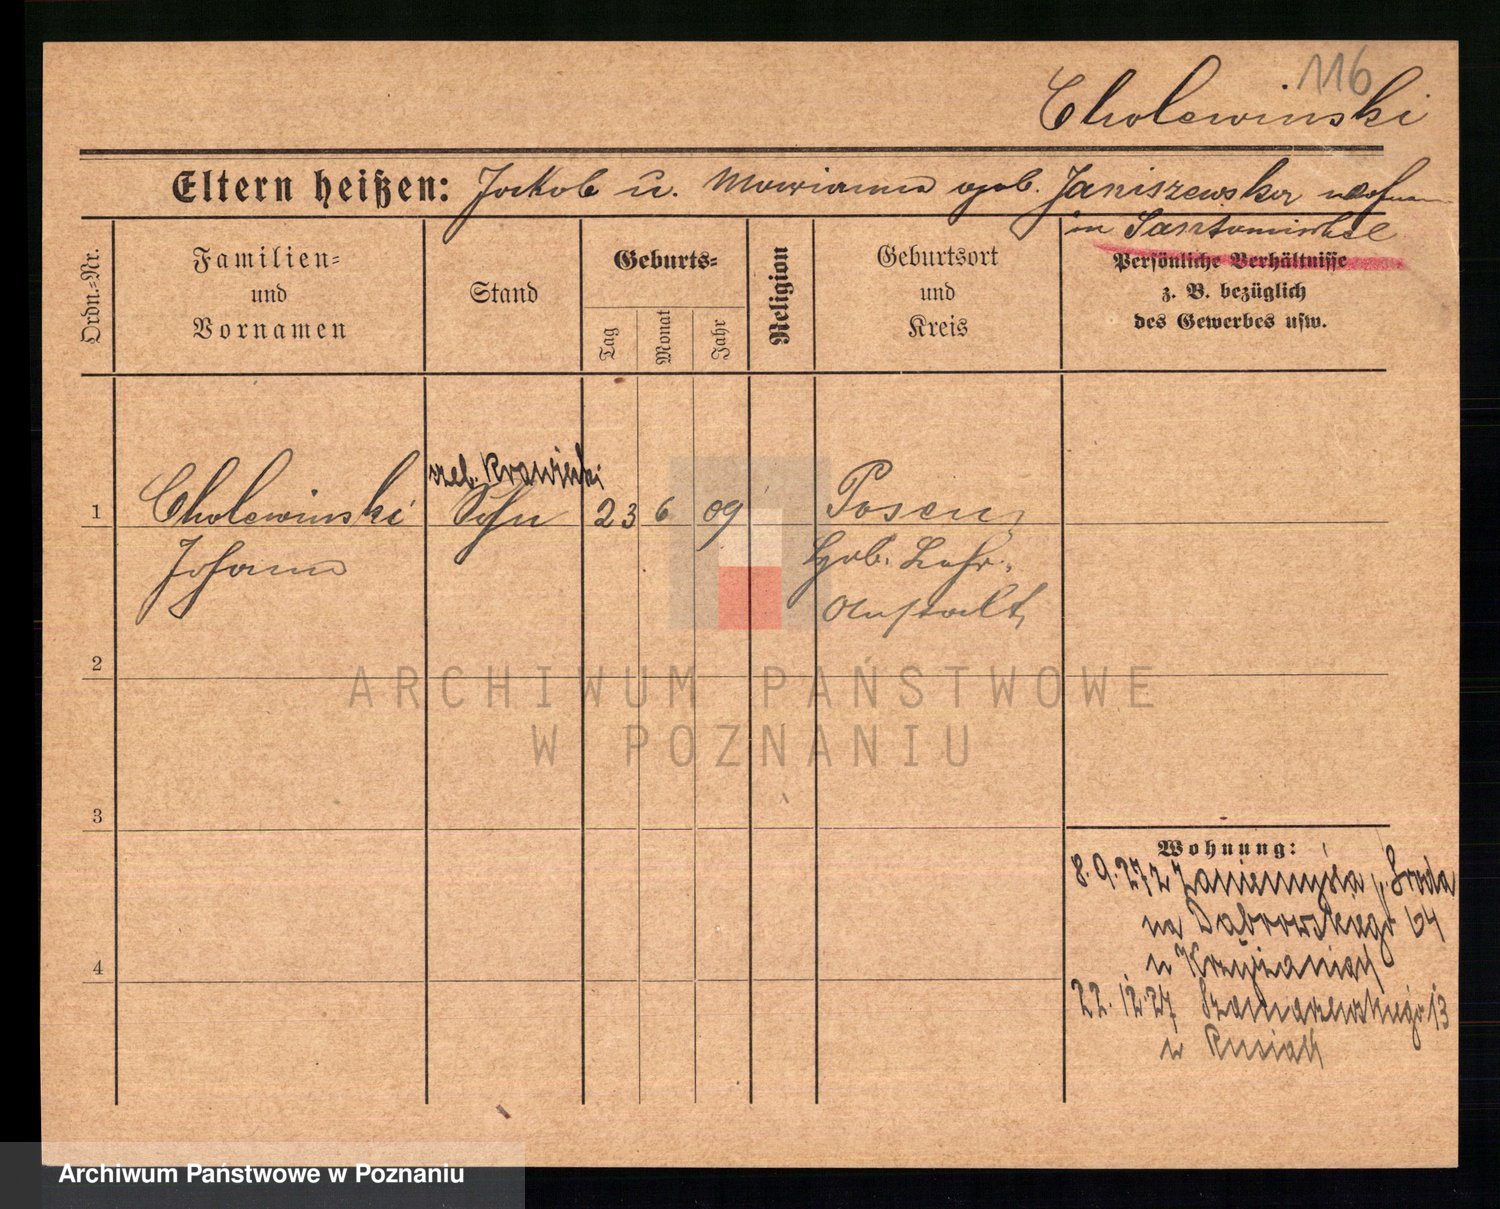 116
Cholewinski
Eltern heißen: Jakob u. Marianna geb. Janiszewska wohn
in Santomischel
Ordn.=Nr.
Familien=
und
Vornamen
Stand
Geburts=
Tag
Monat
Jahr
Religion
Geburtsort
und
Kreis
Persönliche Verhältnisse
z. B. bezüglich
des Gewerbes usw.
czel. Krawiecki
1 Cholewinski Sohn 23 6 09 Posen
Johann Heb. Lehr.
Anstalt
2
3
4
Wohnung:
8.9.27 z Zaniemyśla, Środa
na Dąbrowskiego 64
u Krzyżaniak
22.12.27 Szamarzewskiego 13
u Kusiak
ARCHIWUM PAŃSTWOWE
W POZNANIU
Archiwum Państwowe w Poznaniu